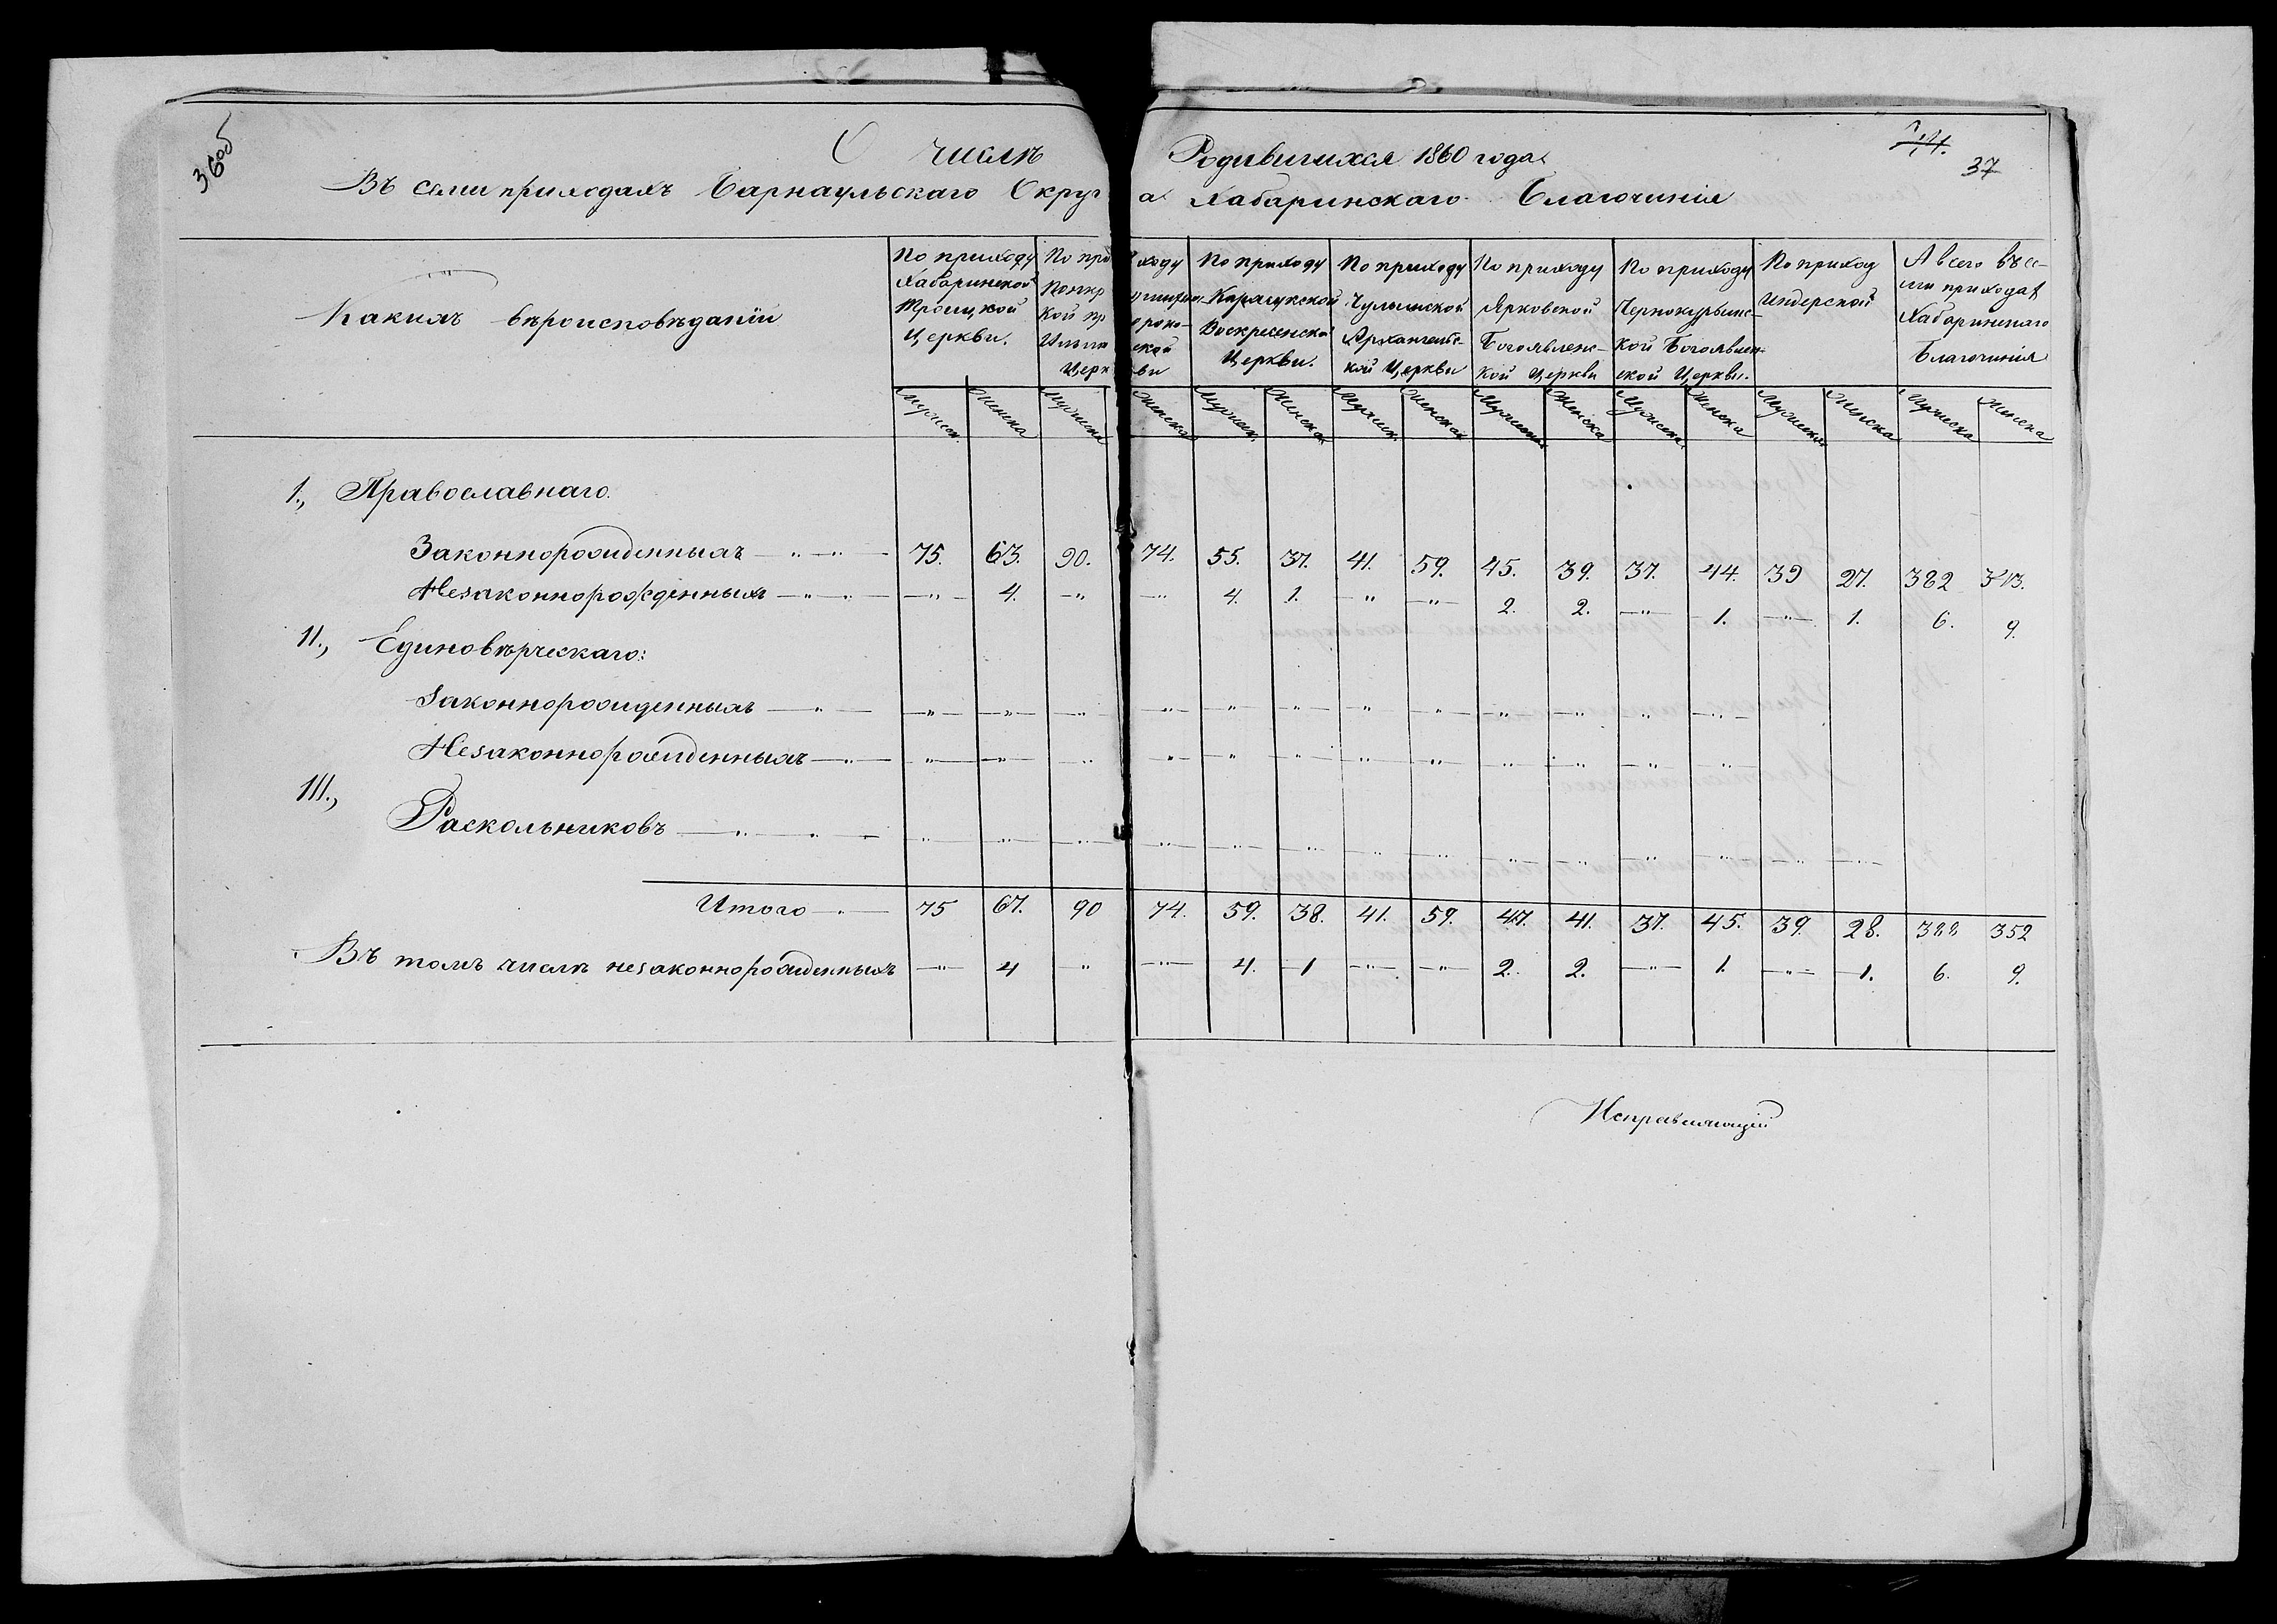 36об
О числѣ Родившихся 1860 года
37
Въ семи приходахъ Барнаульскаго Округа Хабаринскаго Благочинія
Какихъ вѣроисповѣданій
По приходу Хабаринской Троицкой Церкви.
По при ходу
кой пр ороко-
Ильи ской
Церк ви
По приходу Карасукской Воскресенской Церкви.
По приходу Чулымской Архангельской Церкви
По приходу Ярковской Богоявленской Церкви
По приходу Чернокурьинской Богоявленской Церкви.
По приход Индерской
А всего въ семи приходах Хабаринскаго Благочинія
Мужеск. Женска Мужеска Женска Мужеск. Женска Мужеск. Женска Мужеска Женска Мужеска Женска Мужеска Женска Мужеска Женска
1., Православнаго.
Законнорожденныхъ — " — " — 75. 63. 90. 74. 55. 37. 41. 59. 45. 39. 37. 44. 39 27. 382 343.
Незаконнорожденныхъ — " — " — — " — 4. — " — " — 4. 1. — " — " — 2. 2. — " — 1. — " — 1. 6. 9.
11., Единовѣрческаго:
Законнорожденныхъ — " —
Незаконнорожденныхъ — " —
111., Раскольниковъ — " — " —
Итого — " — 75 67. 90 74. 59. 38. 41. 59. 47. 41. 37. 45. 39. 28. 388 352
Въ томъ числѣ незаконнорожденныхъ — " — 4 " — " — 4. 1 — " — — " — 2. 2. — " — 1. — " — 1. 6. 9.
Исправляющій